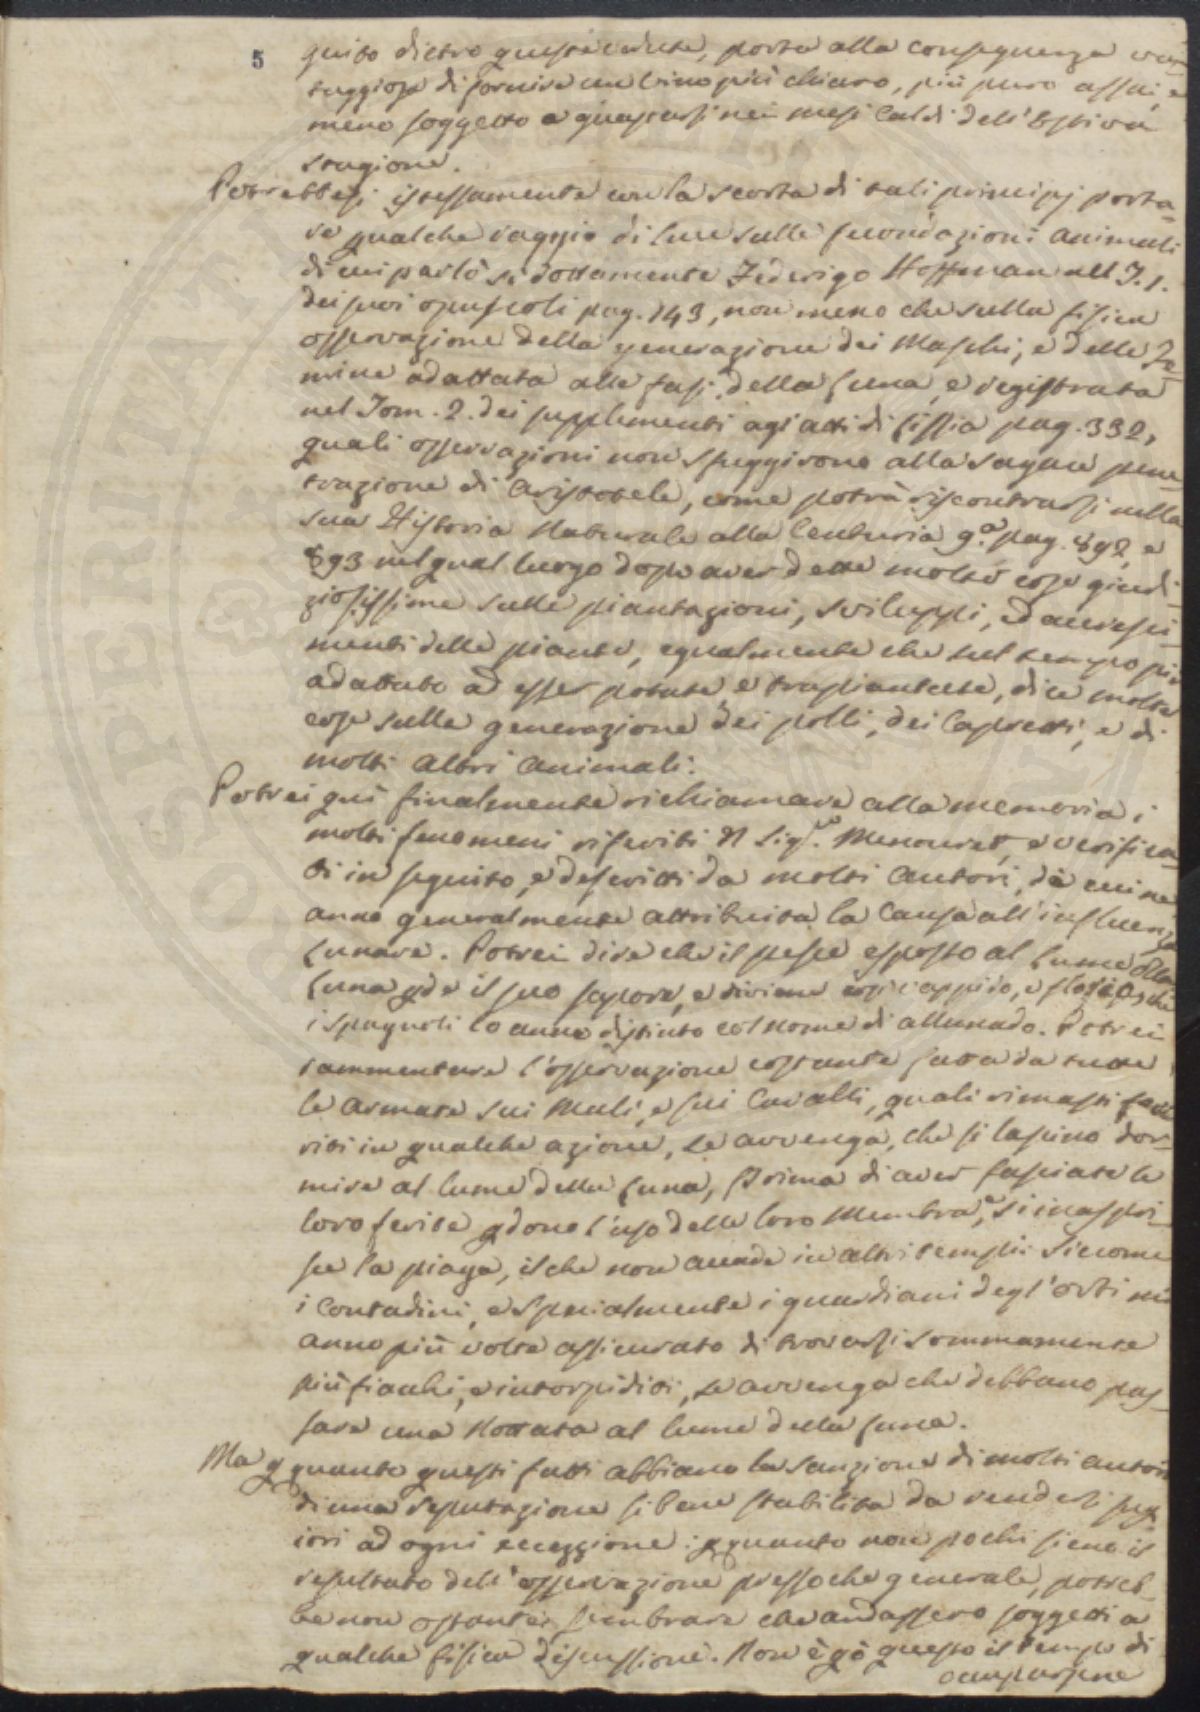 5
guito dietro queste vedute, porta alla conseguenza van
taggiosa di fornire un vino più chiaro, più puro assai, e
meno soggetto a guastarsi nei mesi caldi dell'estiva
stagione.
Potrebbesi istessamente con la scorta di tali principj porta-
re qualche raggio di luce sulle fecondazioni animali
di cui parlò sì dottamente Federigo Hoffman nel T. 1.
dei suoi opuscoli pag. 143, non meno che sulla fisica
osservazione della generazione dei Maschi, e delle Fe-
mine adattata alle fasi della Luna, e registrata
nel Tom. 2. dei supplementi agl'atti di Lissia pag. 332,
quali osservazioni non sfuggirono alla sagace pene-
trazione di Aristotele, come potrà riscontrarsi nella
sua Historia Naturale alla Centuria 9.a pag. 892, e
893 nel qual luogo dopo aver dette molte cose giudi-
ziosissime sulle piantazioni, sviluppi, ed accresci-
menti delle piante, egualmente che sul tempo più
adattato ad esser potate, e trapiantate, dice molte
cose sulla generazione dei polli, dei Capretti, e di
molti altri animali.
Potrei quì finalmente richiamare alla memoria, i
molti fenomeni riferiti Sig.r Menouret, e verifica-
ti in seguito, e descritti da molti autori, da cui ne
anno generalmente attribuita la Causa all'influenza
Lunare. Potrei dire che il pesce esposto al Lume della
Luna pde il suo sapore, e diviene floscio, che
i spagnoli lo anno distinto col nome di allunado. Potrei
rammentare l'osservazione costante fatta da tutte
le armate sui Muli, e sui Cavalli, quali rimasti
riti in qualche azione, se avvenga, che si lascino dor-
mire al lume della Luna, prima di aver fasciate le
loro ferite pdono l'uso delle loro Membra, s'inaspri-
sce la piaga, il che non accade in altri tempi: siccome
i Contadini, e specialmente i guardiani degl'orti mi
anno più volte assicurato di trovarsi sommamente
più fiachi, e intorpiditi, se avvenga che debbano pas-
sare una Nottata al lume della Luna.
Ma p quanto questi fatti abbiano la sanzione di molti autori
di una reputazione si bene stabilita da rendersi sup
iori ad ogni eccezzione: p quanto non pochi sieno il
resultato dell'osservazione pressoche generale, potreb-
be non ostante sembrare che andassero soggetti a
qualche fisica discussione. Non è gò questo il tempo di
occuparsene